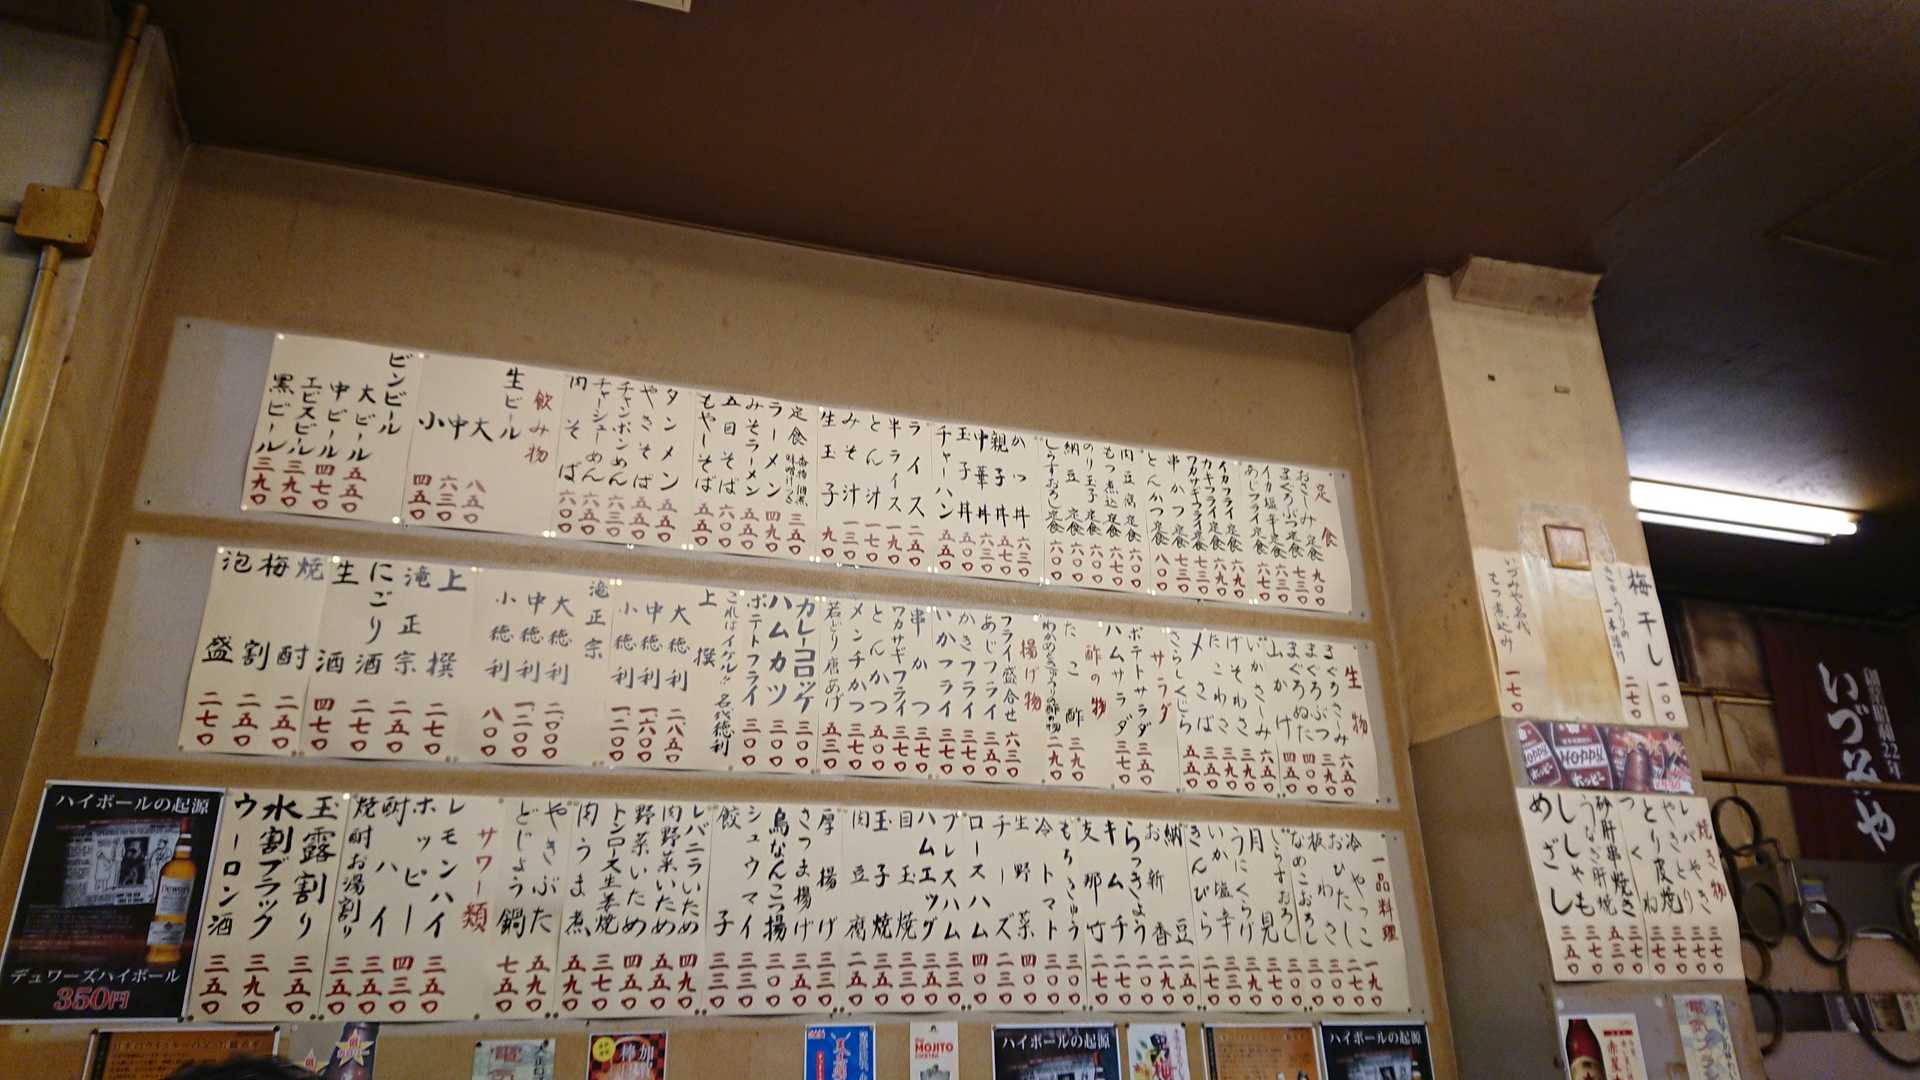 定食
おさしみ定食 九〇〇
まぐろぶつ定食 七三〇
イカ塩辛定食 六三〇
あじフライ定食 六七〇
イカフライ定食 六九〇
カキフライ定食 六九〇
ワカサギフライ定食 七三〇
串かつ定食 七三〇
とんかつ定食 八〇〇
肉豆腐定食 六〇〇
もつ煮込定食 六〇〇
のり玉子定食 六〇〇
納豆定食 六〇〇
しらすおろし定食 六〇〇
かつ丼 六三〇
親子丼 五七〇
中華丼 六三〇
玉子丼 五〇〇
チャーハン 五五〇
ライス 二五〇
半ライス 一九〇
とん汁 一七〇
みそ汁 一三〇
生玉子 九〇
定食 三五〇
ラーメン 四九〇
みそラーメン 五五〇
五目そば 六〇〇
もやしそば 五五〇
タンメン 五五〇
やきそば 五五〇
チャンポンめん 六三〇
チャーシューめん 六〇〇
肉そば 六〇〇
飲み物
生ビール
大 八五〇
中 六三〇
小 四五〇
ビンビール
大ビール 五五〇
中ビール 四七〇
エビスビール 三九〇
黒ビール 三九〇
生物
まぐろさしみ 六五〇
まぐろぶつ 三九〇
まぐろぬた 四〇〇
山かけ 四五〇
いかさしみ 六五〇
げそわさ 三九〇
たこわさ 三九〇
〆さば 五五〇
さらしくじら 五五〇
サラダ
ポテトサラダ 三五〇
ハムサラダ 三七〇
酢の物
たこ酢 三九〇
わかめときゅうり酢の物 二九〇
揚げ物
フライ盛合せ 六三〇
あじフライ 三五〇
かきフライ 三七〇
いかフライ 三七〇
串かつ 三七〇
ワカサギフライ 三七〇
とんかつ 五〇〇
メンチかつ 三七〇
若どり唐あげ 五三〇
カレーコロッケ 三〇〇
ハムカツ 三〇〇
ポテトフライ 三〇〇
これはイケル!! 名代徳利
上撰
大徳利 二八五〇
中徳利 一六〇〇
小徳利 一二〇〇
滝正宗
大徳利 二〇〇〇
中徳利 一二〇〇
小徳利 八〇〇
上撰 二七〇
滝正宗 二五〇
にごり酒 二七〇
生酒 四七〇
焼酎 二五〇
梅割 二五〇
泡盛 二七〇
一品料理
冷やっこ 一九〇
おひたし 二七〇
板わさ 三〇〇
なめこおろし 三〇〇
しらすおろし 三〇〇
月見 二七〇
うにくらげ 三三〇
いか塩辛 三三〇
きんぴら 二七〇
納豆 一五〇
お新香 二九〇
らっきょう 二七〇
キムチ 二七〇
支那竹 二七〇
もろきゅう 三〇〇
冷トマト 三〇〇
生野菜 二三〇
チーズ 三〇〇
ロースハム 四〇〇
プレスハム 三三〇
ハムエッグ 三五〇
目玉焼 三三〇
玉子焼 三五〇
肉豆腐 二五〇
厚揚げ 三三〇
さつま揚げ 三三〇
鳥なんこつ揚 三〇〇
シュウマイ 三三〇
餃子 三三〇
レバニラいため 四九〇
肉野菜いため 五五〇
野菜いため 四五〇
トンロース生姜焼 三七〇
肉うま煮 五九〇
やきぶた 五九〇
どじょう鍋 七五〇
サワー類
レモンハイ 三五〇
ホッピー 四三〇
酎ハイ 三五〇
焼酎お湯割り 三五〇
玉露割り 三五〇
水割ブラック 三九〇
ウーロン酒 三五〇
梅干し 一〇〇
二七〇
いづみや名代
もつ煮込み 一七〇
Hoppy
ホッピー
焼き物
レバやき 三七〇
やきとり 三七〇
とり皮焼 三七〇
つくね 三七〇
砂肝串焼き 五三〇
うなぎ肝焼
ししゃも 三七〇
めざし 三五〇
創業昭和22年
いづみや
ハイボールの起源
デュワーズハイボール
350円
MOJITO
ハイボールの起源
ハイボールの起源